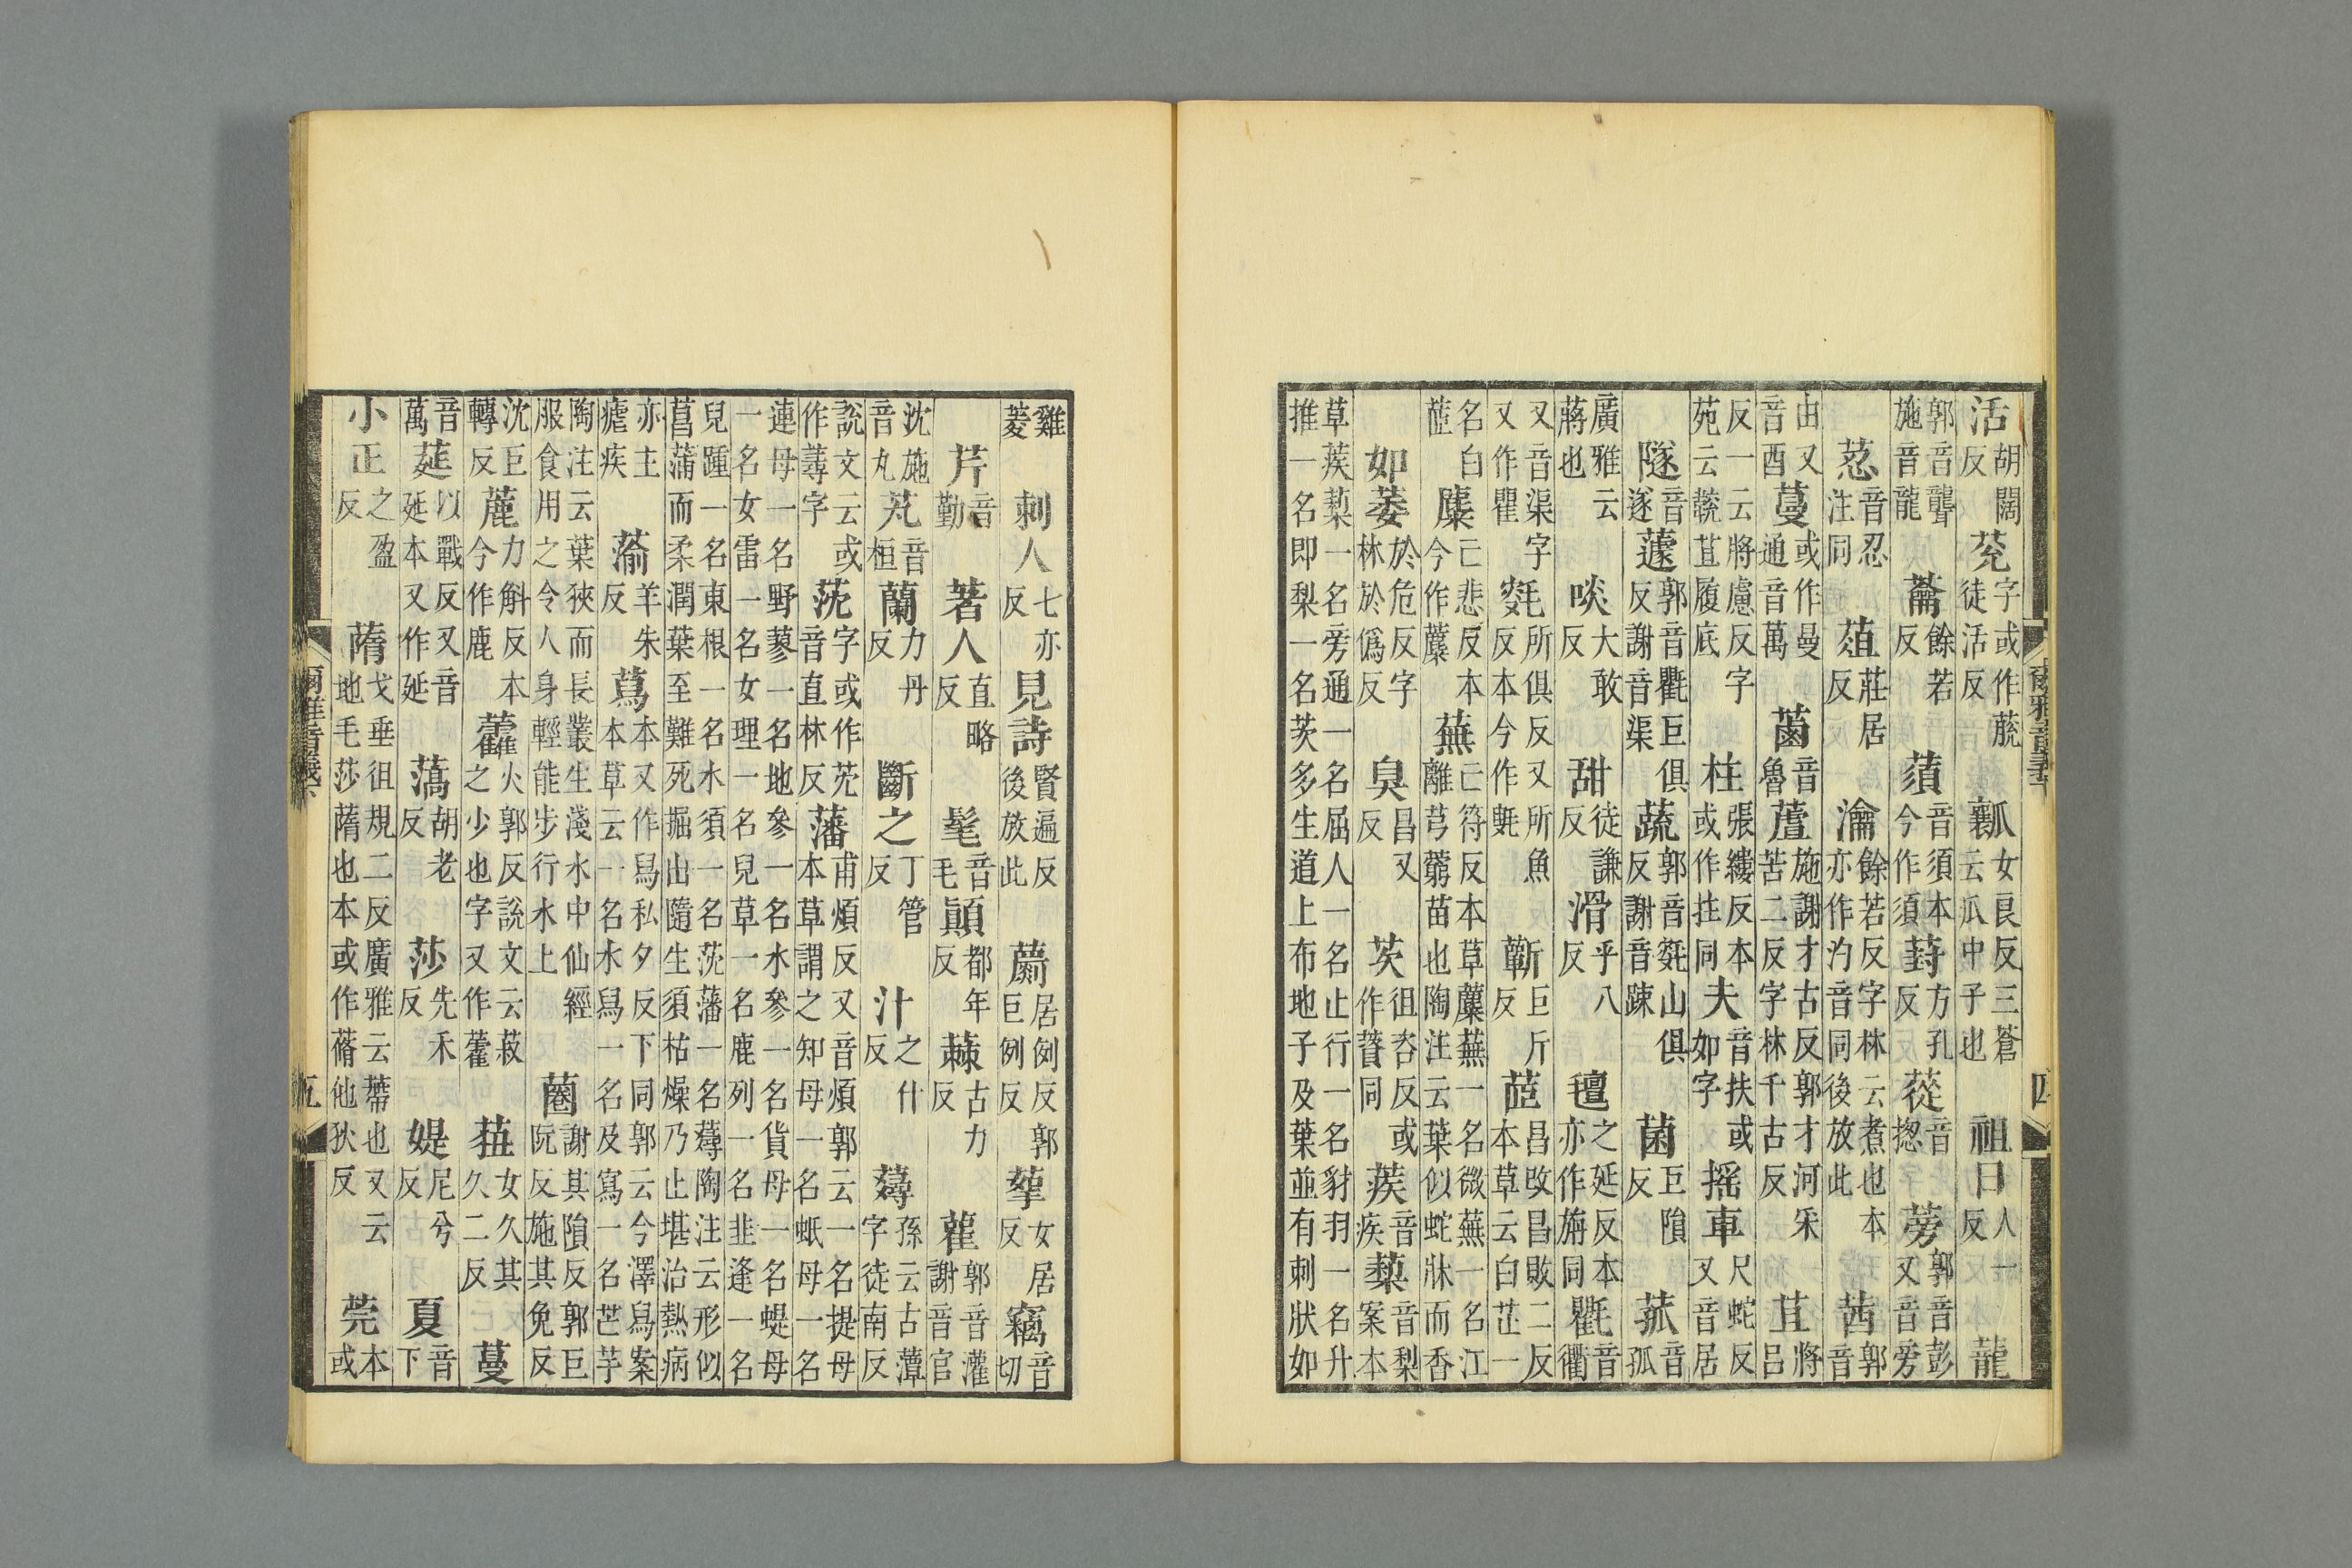 活胡闊反莌字或作徒活反𤬓女良反三蒼云瓜中子也祖日人一反龍
郭音聾施音龍蘥餘若反蕦音須本今作須葑方孔反蓯音揔蒡郭音彭又音旁
荵音忍注同葅莊居反瀹餘若反字林云煮也本亦作汋音同後放此茜郭音
由又音酉蔓或作曼通音萬菌音魯蘆施謝才古反郭才河采苦二反字林千古反苴將呂
反一云將慮反字苑云䟽苴履底柱張縷反本或作拄同夫音扶或如字摇車尺蛇反又音居
隧音遂蘧郭音氍巨俱反謝音渠蔬郭音㲣山俱反謝音踈菌巨隕反菰音孤
廣雅云蔣也啖大敢反甜徒謙反滑乎八反氊之延反本亦作旃同氍音衢
又音渠字又作瞿㲣所俱反又所魚反本今作毹蘄巨斤反茝昌改昌敗二反本草云白芷一
名白茝麋亡悲反本今作蘪蕪亡符反本草蘪蕪一名微蕪一名江蘺芎藭苗也陶注云葉似蛇牀而香
如萎於危反字林於僞反臭昌又反茨徂咨反或作薋同蒺音疾蔾音梨案本
草蒺蔾一名旁通一名屈人一名止行一名豺羽一名升推一名即梨一名茨多生道上布地子及葉並有刺狀如
爾雅音義下
四
雞菱刺人七亦反見詩賢遍反後放此藆居例反郭巨例反挐女居反竊音切
芹音勤著人直略反髦音毛顛都年反蕀古力反雚郭音灌謝音官
沈施音丸芄音桓蘭力丹反斷之丁管反汁之什反蕁孫云古藫字徒南反
說文云或作蕁字莐字或作茺音直林反藩甫煩反又音煩郭云一名提母本草謂之知母一名蚔母一名
連母一名野蓼一名地參一名水參一名貨母一名蝭母一名女雷一名女理一名兒草一名鹿列一名韭逢一名
兒踵一名東根一名水須一名莐藩一名蕁陶注云形似菖蒲而柔潤葉至難死掘出隨生須枯燥乃止堪治熱病
亦主瘧疾蕍羊朱反蔿本又作舄私夕反下同郭云今澤舄案本草云一名水舄一名及寫一名芒芋
陶注云葉狹而長叢生淺水中仙經服食用之令人身輕能步行水上蔨謝其隕反郭巨阮反施其免反
沈巨轉反蔍力斛反本今作鹿藿火郭反說文云菽之少也字又作藿莥女久其久二反蔓
音萬莚以戰反又音延本又作延薃胡老反莎先禾反媞尼兮反夏音下
小正之盈反蓨戈垂徂規二反廣雅云地毛莎蓨也本或作蓨他狄反莞本或
爾雅音義下
五